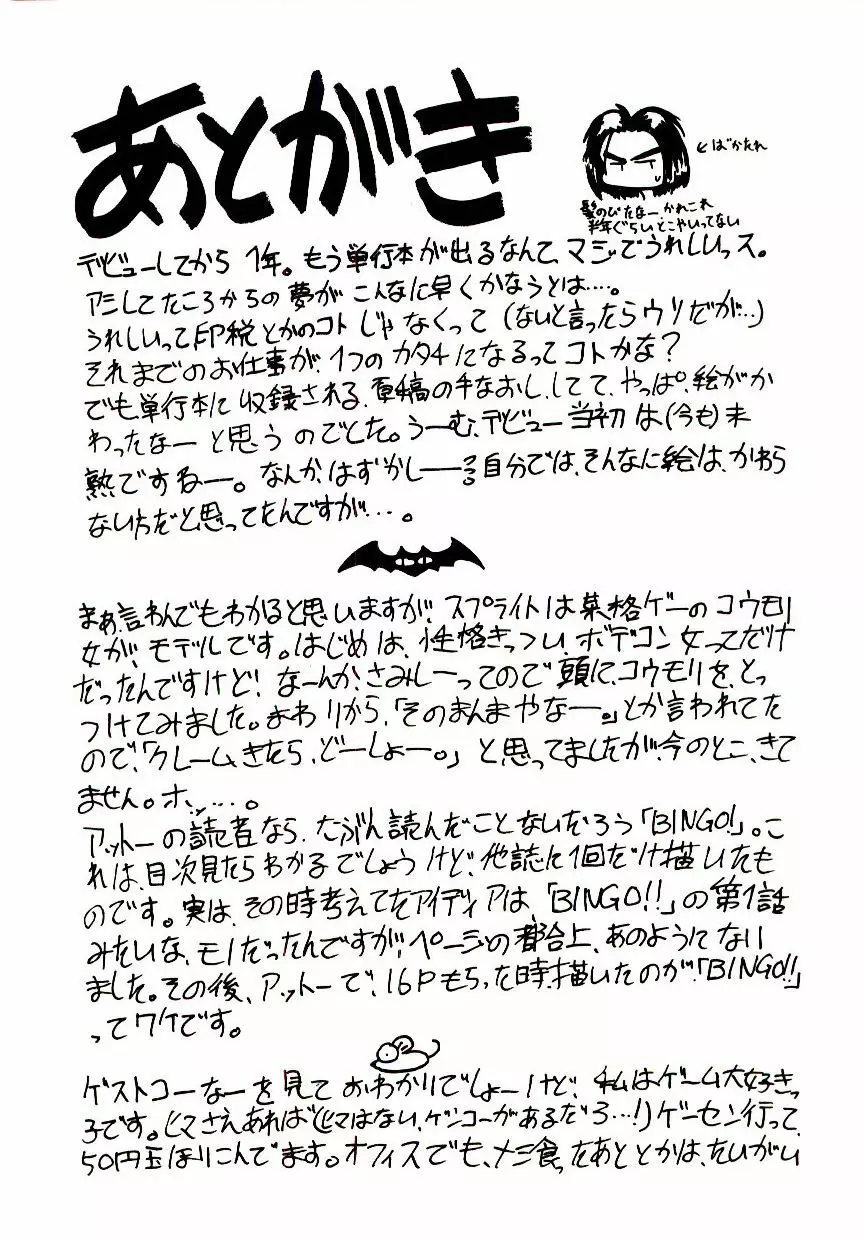 あとがき
←ばかたれ
髪のびたなー、かれこれ
半年ぐらいとこやいってない
デビューしてから1年。もう単行本が出るなんて、マジでうれしいっス。
アシしてたころからの夢がこんなに早くかなうとは…。
うれしいって印税とかのコトじゃなくって(ないと言ったらウソだが…)
それまでのお仕事が、1つのカタチになるってコトかな?
でも、単行本に収録される、原稿の手なおし、してて、やっぱ。絵がか
わったなーと思うのでした。うーむ、デビュー当初は(今も)未
熟ですなー。なんか、はずかしーっ。自分では、そんなに絵は、かわら
ない方だと思ってたんですが…。
まぁ、言わんでもわかると思いますが、スプライトは某格ゲーのコウモリ
女が、モデルです。はじめは、性格きっつい、ボデコン女ってだけ
だったんですけど、なーんか、さみしーってので頭に、コウモリを、とっ
つけてみました。まわりから、「そのまんまやなー。」とか言われてた
ので、「クレーム、きたら、どーしょー。」と思ってましたが、今のとこ、きて
ません。ホッ…。
アットーの読者なら、たぶん読んだことないだろう「BINGO!」。こ
れは、目次見たらわかるでしょうけど、他誌に1回だけ描いたも
のです。実は、その時考えてたアイディアは、「BINGO!!」の第1話
みたいな、モノだったんですが、ページの都合上、あのようにない
ました。その後、アットーで、16Pもらった時、描いたのが、「BINGO!!」
ってワケです。
ゲストコーなーを見ておわかりでしょーけど、私はゲーム大好きっ
子です。ヒマさえあれば(ヒマはない、ゲンコーがあるだろ…!)ゲーセン行って、
50円玉ほりこんでます。オフィスでも、メシ食ったあととかは、たいがい